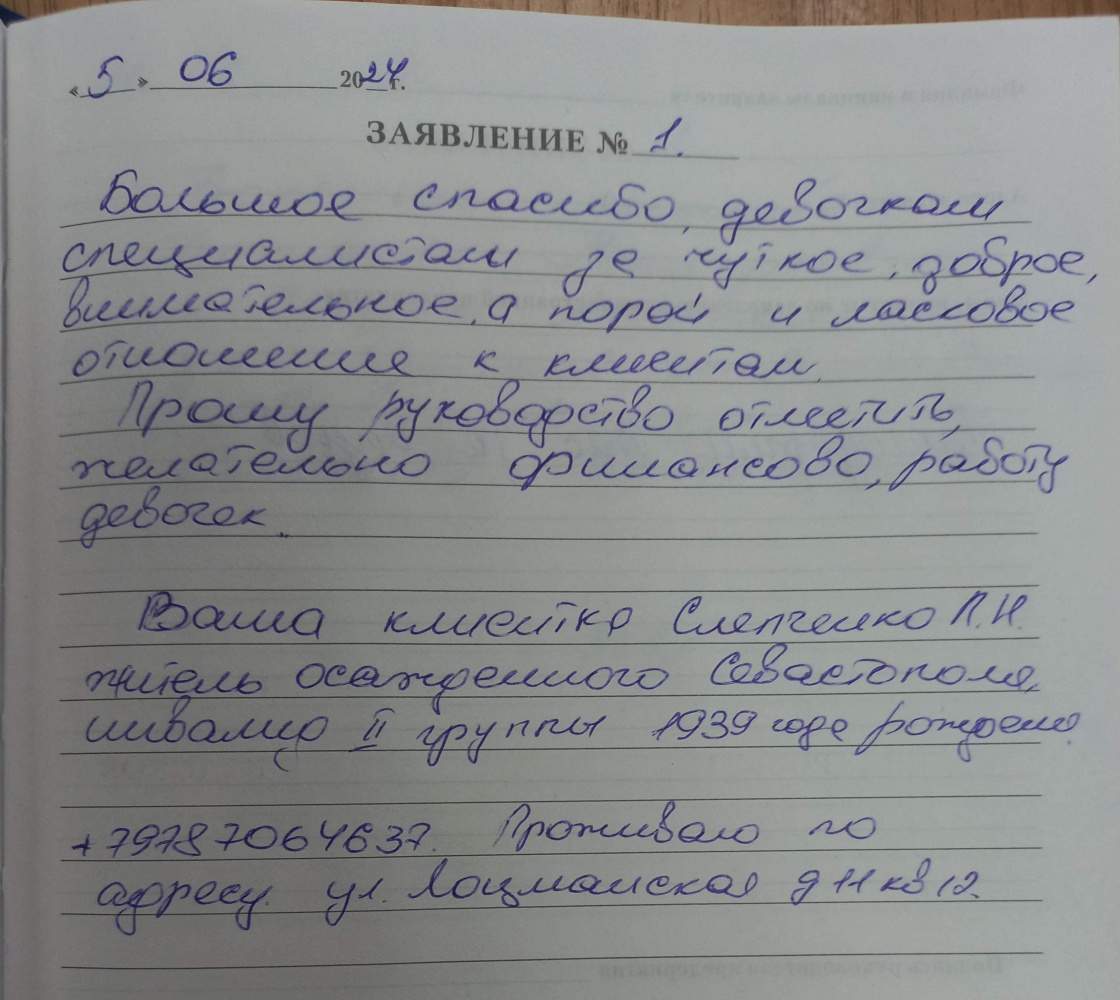 «5» 06 2024г.
ЗАЯВЛЕНИЕ № 1.
Большое спасибо, девочкам
специалистам за чуткое, доброе,
внимательное, а порой и ласковое
отношение к клиентам.
Прошу руководство отметить,
желательно финансово, работу
девочек.
Ваша клиентка Слепченко Л.Н.
житель осажденного Севастополя,
инвалид II группы 1939 года рождения
+79787064637. Проживаю по
адресу. ул. Лоцманская д 11 кв 12.